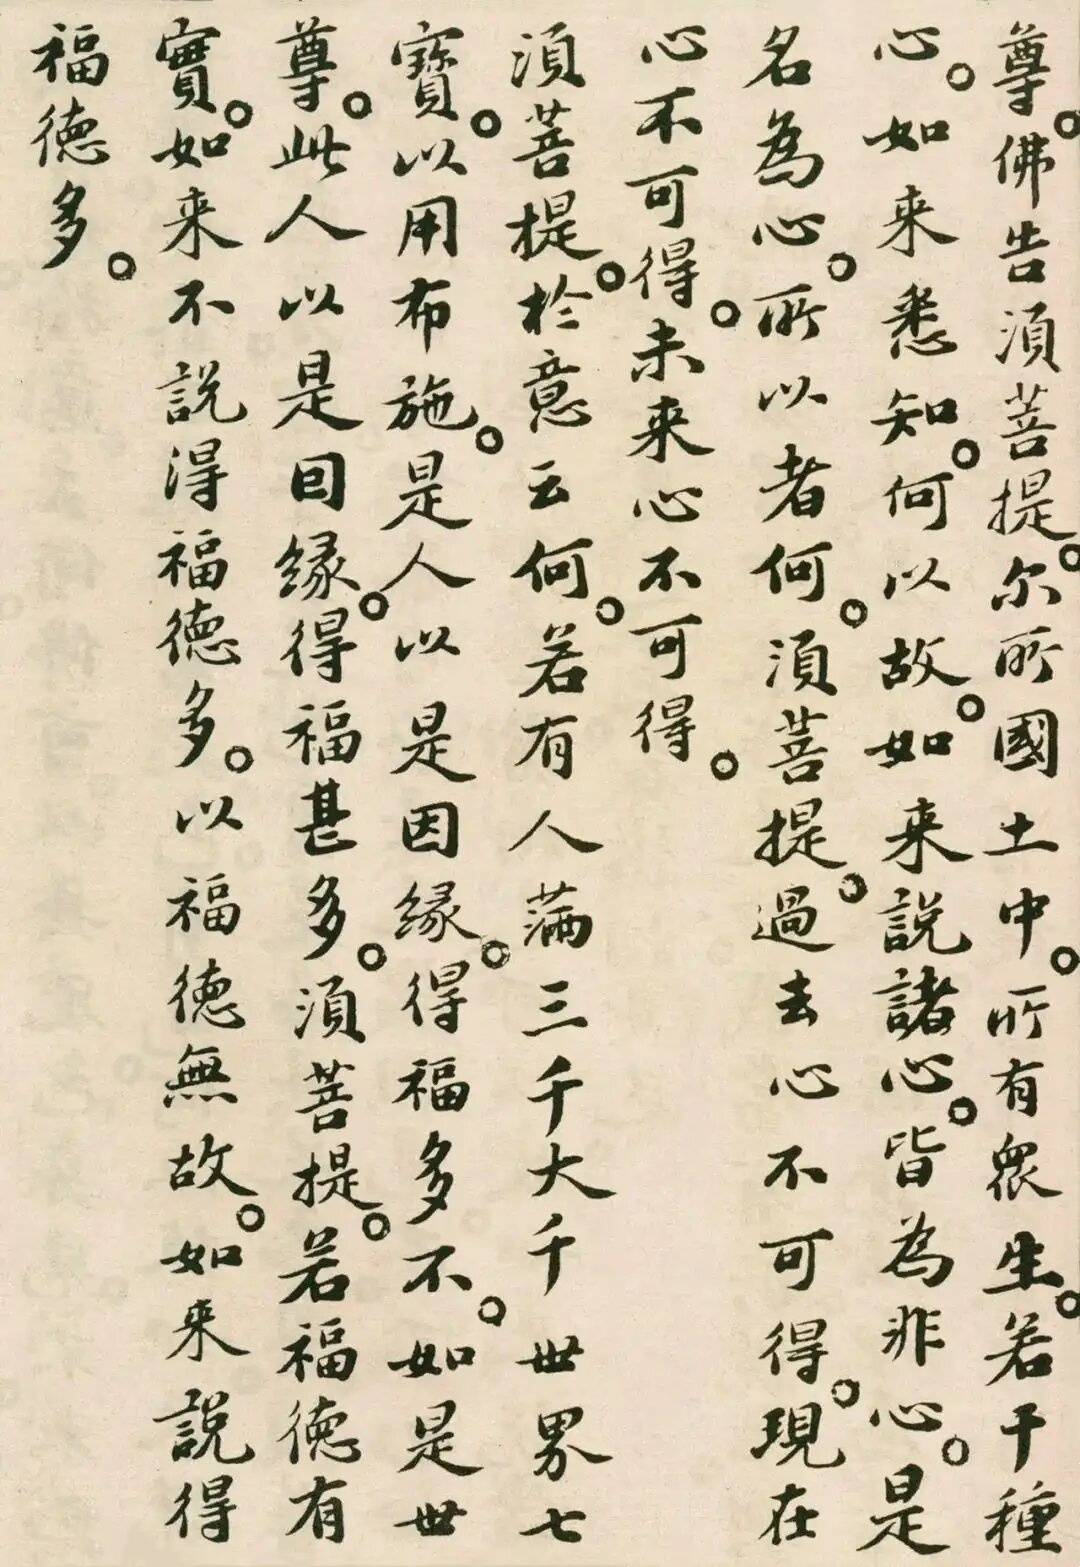 尊。佛告須菩提。尔所國土中。所有衆生。若干種
心。如来悉知。何以故。如来說諸心。皆為非心。是
名為心。所以者何。須菩提。過去心不可得。現在
心不可得。未来心不可得。
須菩提。於意云何。若有人滿三千大千世界七
寶。以用布施。是人以是因緣。得福多不。如是世
尊。此人以是囙緣。得福甚多。須菩提。若福德有
實。如来不說得福德多。以福德無故。如来說得
福德多。